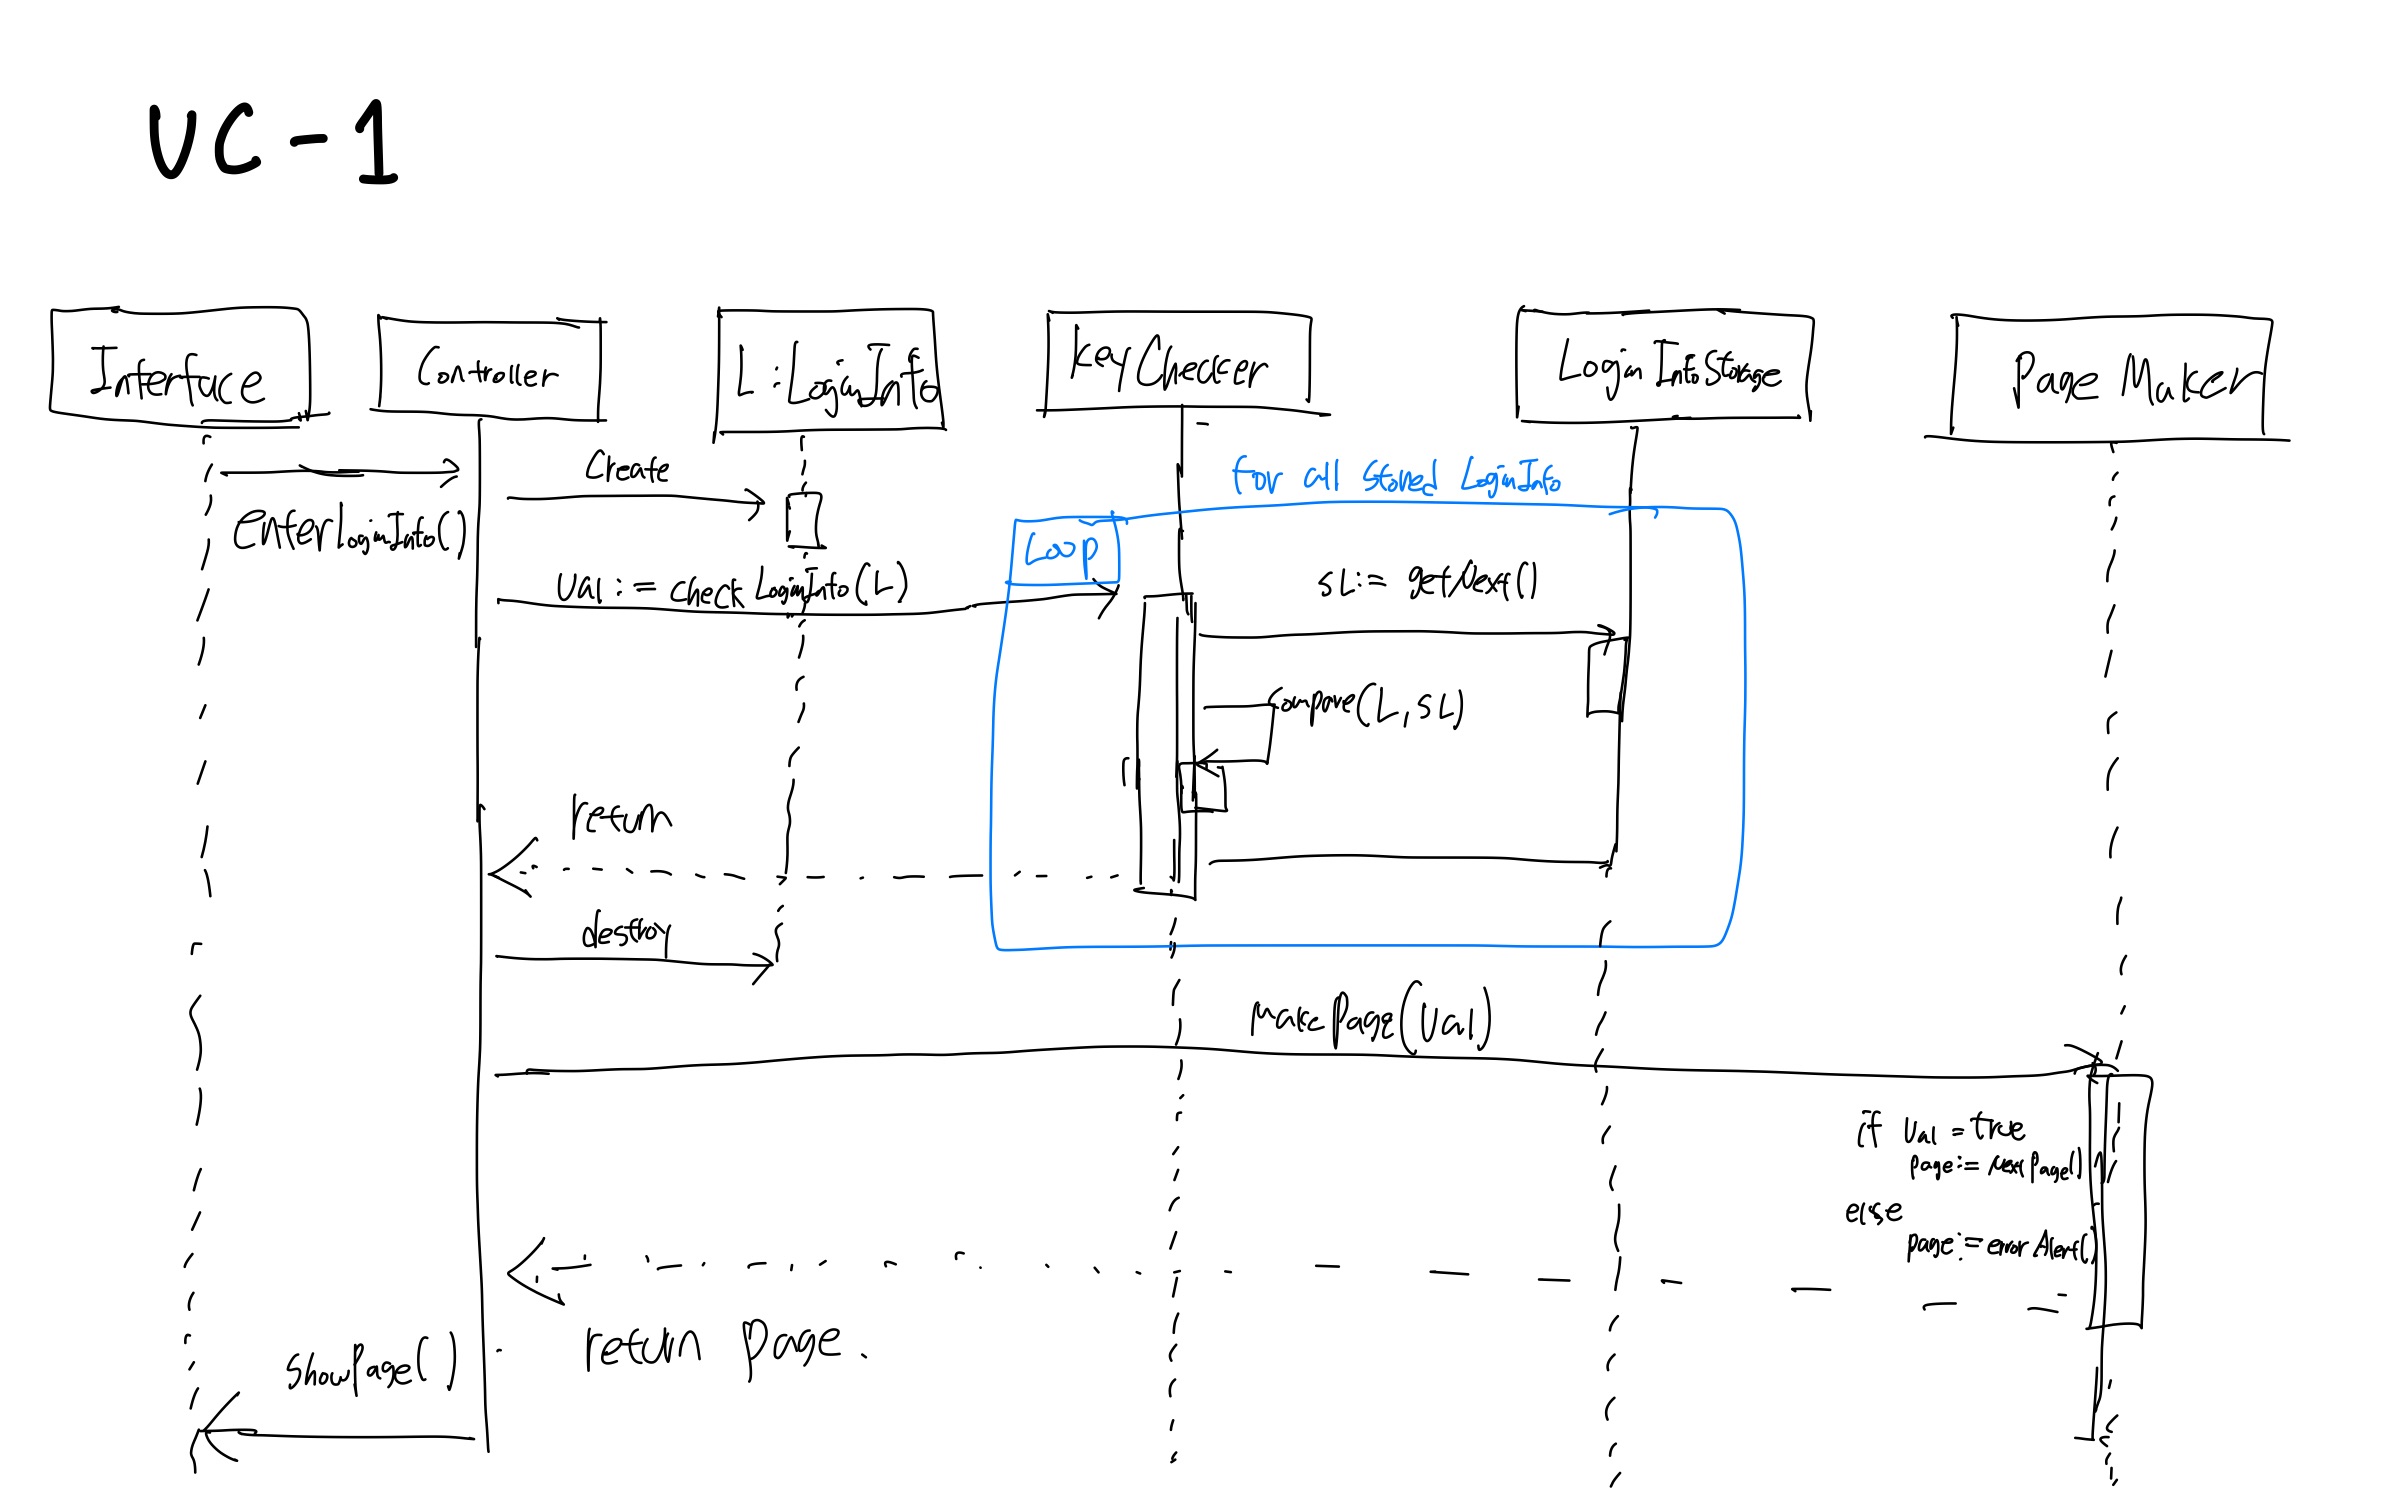 UC-1
Interface
Controller
L : LoginInfo
KeyChecker
Login InfoStorage
Page Maker
Create
for all stored LoginInfo
enterLoginInfo()
Loop
Val := check LoginInfo(L)
sL:= getNext()
compare(L, sL)
return
destroy
makePage(Val)
if Val = true
Page:= NextPage()
else
page:= errorAlert()
return page.
showPage()